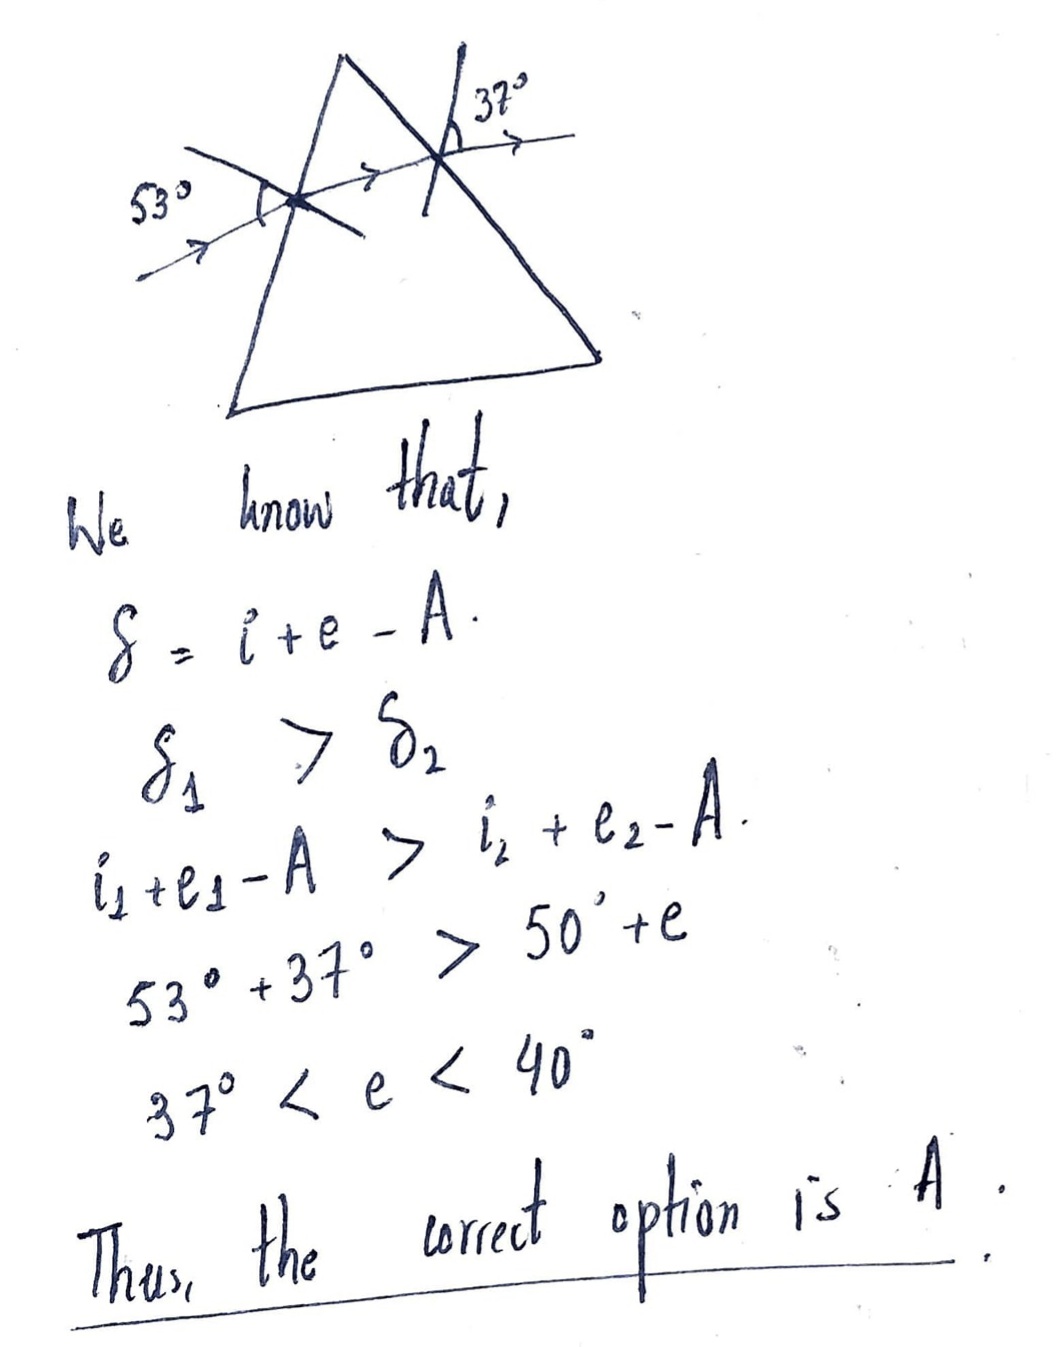 37°
53°
We know that,
δ = i + e - A.
δ1 > δ2
i1 + e1 - A > i2 + e2 - A.
53° + 37° > 50° + e
37° < e < 40°
Thus, the correct option is A.